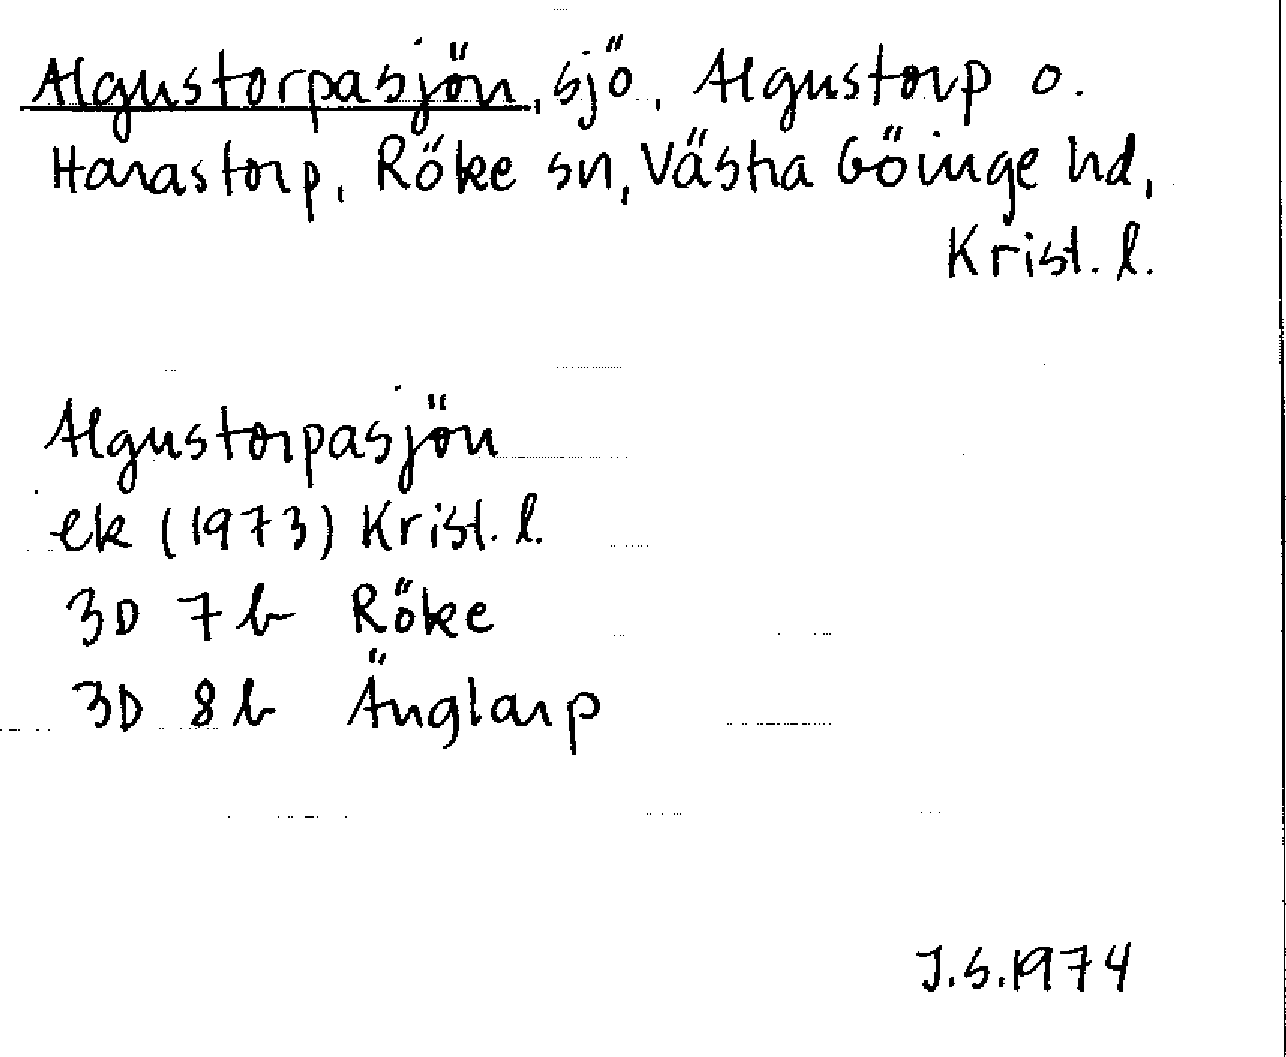 Algustorpasjön, sjö, Algustorp o.
Harastorp, Röke sn, Västra Göinge hd,
Krist. l.
Algustorpasjön
ek (1973) Krist. l.
3D 7b Röke
3D 8b Änglarp
J.S.1974